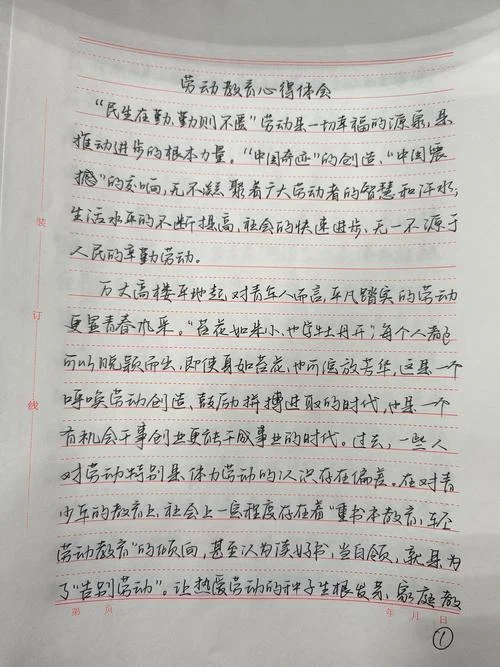 劳动教育心得体会
“民生在勤,勤则不匮”劳动是一切幸福的源泉,是
推动进步的根本力量。“中国奇迹”的创造、“中国震
撼”的影响,无不凝聚着广大劳动者的智慧和汗水;
生活水平的不断提高,社会的快速进步,无一不源于
人民的辛勤劳动。
万丈高楼平地起,对青年人而言,平凡踏实的劳动
更显青春风采。“苔花如米小,也学牡丹开”;每个人都
可以脱颖而出,即使身如苔花,也可绽放芳华,这是一个
呼唤劳动创造、鼓励拼搏进取的时代,也是一个
有机会干事创业更能干成事业的时代。过去,一些人
对劳动特别是体力劳动的认识存在偏差。在对青
少年的教育上,社会上一定程度存在着“重书本教育,轻
劳动教育”的倾向,甚至认为读好书,当白领,就是为
了“告别劳动”。让热爱劳动的种子生根发芽,家庭教
装
订
线
第 页 年 月 日
①